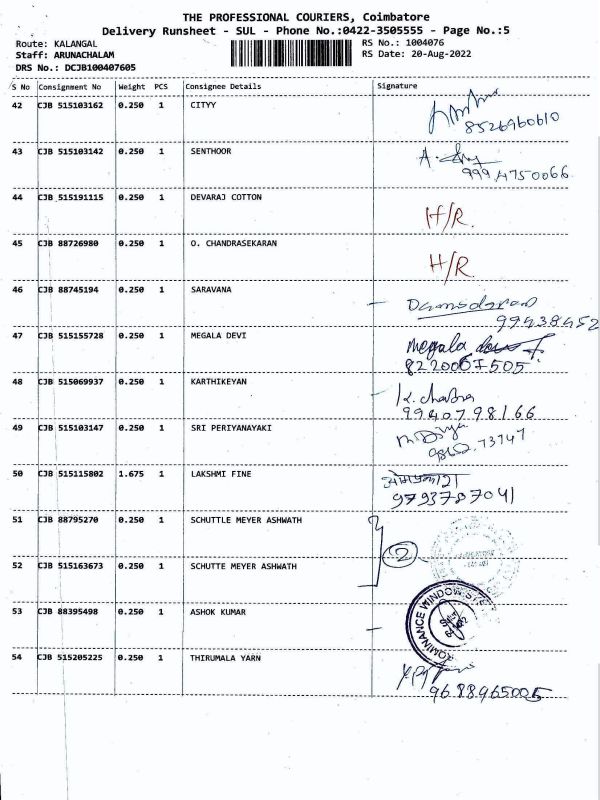 THE PROFESSIONAL COURIERS, Coimbatore
Delivery Runsheet - SUL - Phone No.:0422-3505555 - Page No.:5
Route: KALANGAL RS No.: 1004076
Staff: ARUNACHALAM RS Date: 20-Aug-2022
DRS No.: DCJB100407605
S No Consignment No Weight PCS Consignee Details Signature
42 CJB 515103162 0.250 1 CITYY
8526960610
43 CJB 515103142 0.250 1 SENTHOOR
9994750066
44 CJB 515191115 0.250 1 DEVARAJ COTTON
H/R.
45 CJB 88726980 0.250 1 O. CHANDRASEKARAN
H/R
46 CJB 88745194 0.250 1 SARAVANA
Damodaran
99438452
47 CJB 515155728 0.250 1 MEGALA DEVI
Megala
8220067505
48 CJB 515069937 0.250 1 KARTHIKEYAN
9940798166
49 CJB 515103147 0.250 1 SRI PERIYANAYAKI
50 CJB 515115802 1.675 1 LAKSHMI FINE
9793787041
51 CJB 88795270 0.250 1 SCHUTTLE MEYER ASHWATH
2
52 CJB 515163673 0.250 1 SCHUTTE MEYER ASHWATH
53 CJB 88395498 0.250 1 ASHOK KUMAR
54 CJB 515205225 0.250 1 THIRUMALA YARN
9688965005